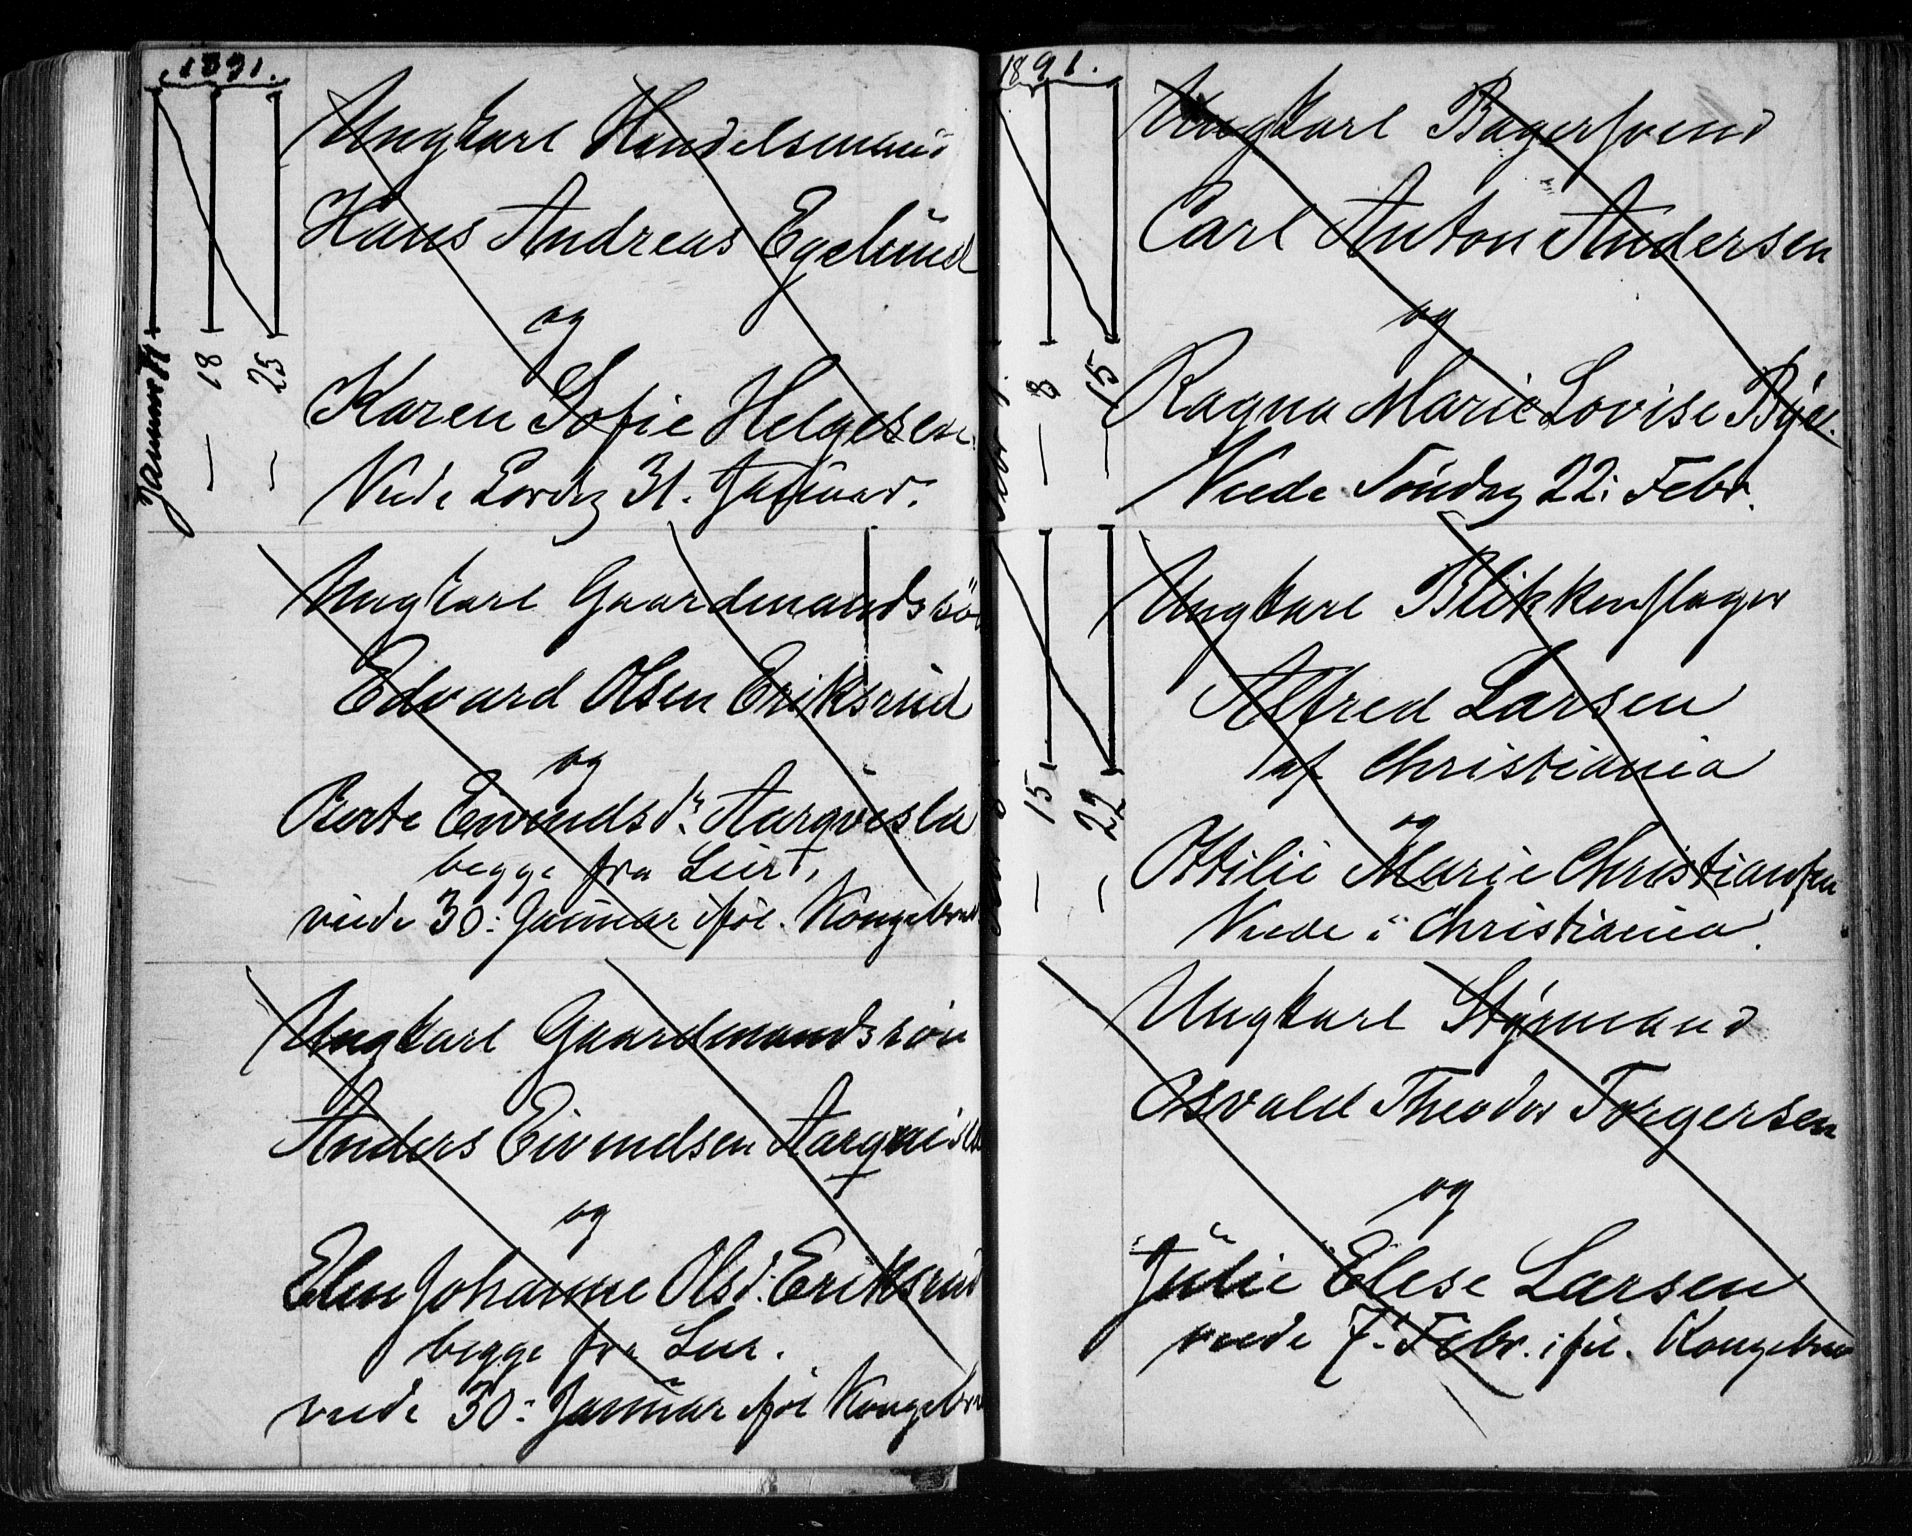 1891.
Januar 11
— 18
— 25
Ungkarl Handelsmand
Hans Andreas Egelund
og
Karen Sofie Helgesen.
Viede Lørdag 31. Januar.
Ungkarl Gaardmandssö
Edvard Olsen Eriksrud
og
Eivindsdr. Aarqvisla
begge fra Lier,
viede 30: Januar iføl. Kongebrev
Ungkarl Gaardmandssön
Anders Eivindsen Aarqvisla
og
Elen Johanne Olsd. Eriksrud
begge fra Lier.
viede 30: Januar iføl Kongebrev
1891.
Febr 1
— 8
— 15
Ungkarl Bagersvend
Carl Anton Andersen
og
Ragna Marie Lovise Bye.
Viede Söndag 22: Febr.
— 15
— 22
Ungkarl Blikkenslager
Alfred Larsen
af Christiania
og
Ottilie Marie Christiansen
Viede i Christiania.
Ungkarl Styrmand
Osvald Theodor Torgersen
og
Julie Elese Larsen
viede 7. Febr. iføl. Kongebrev